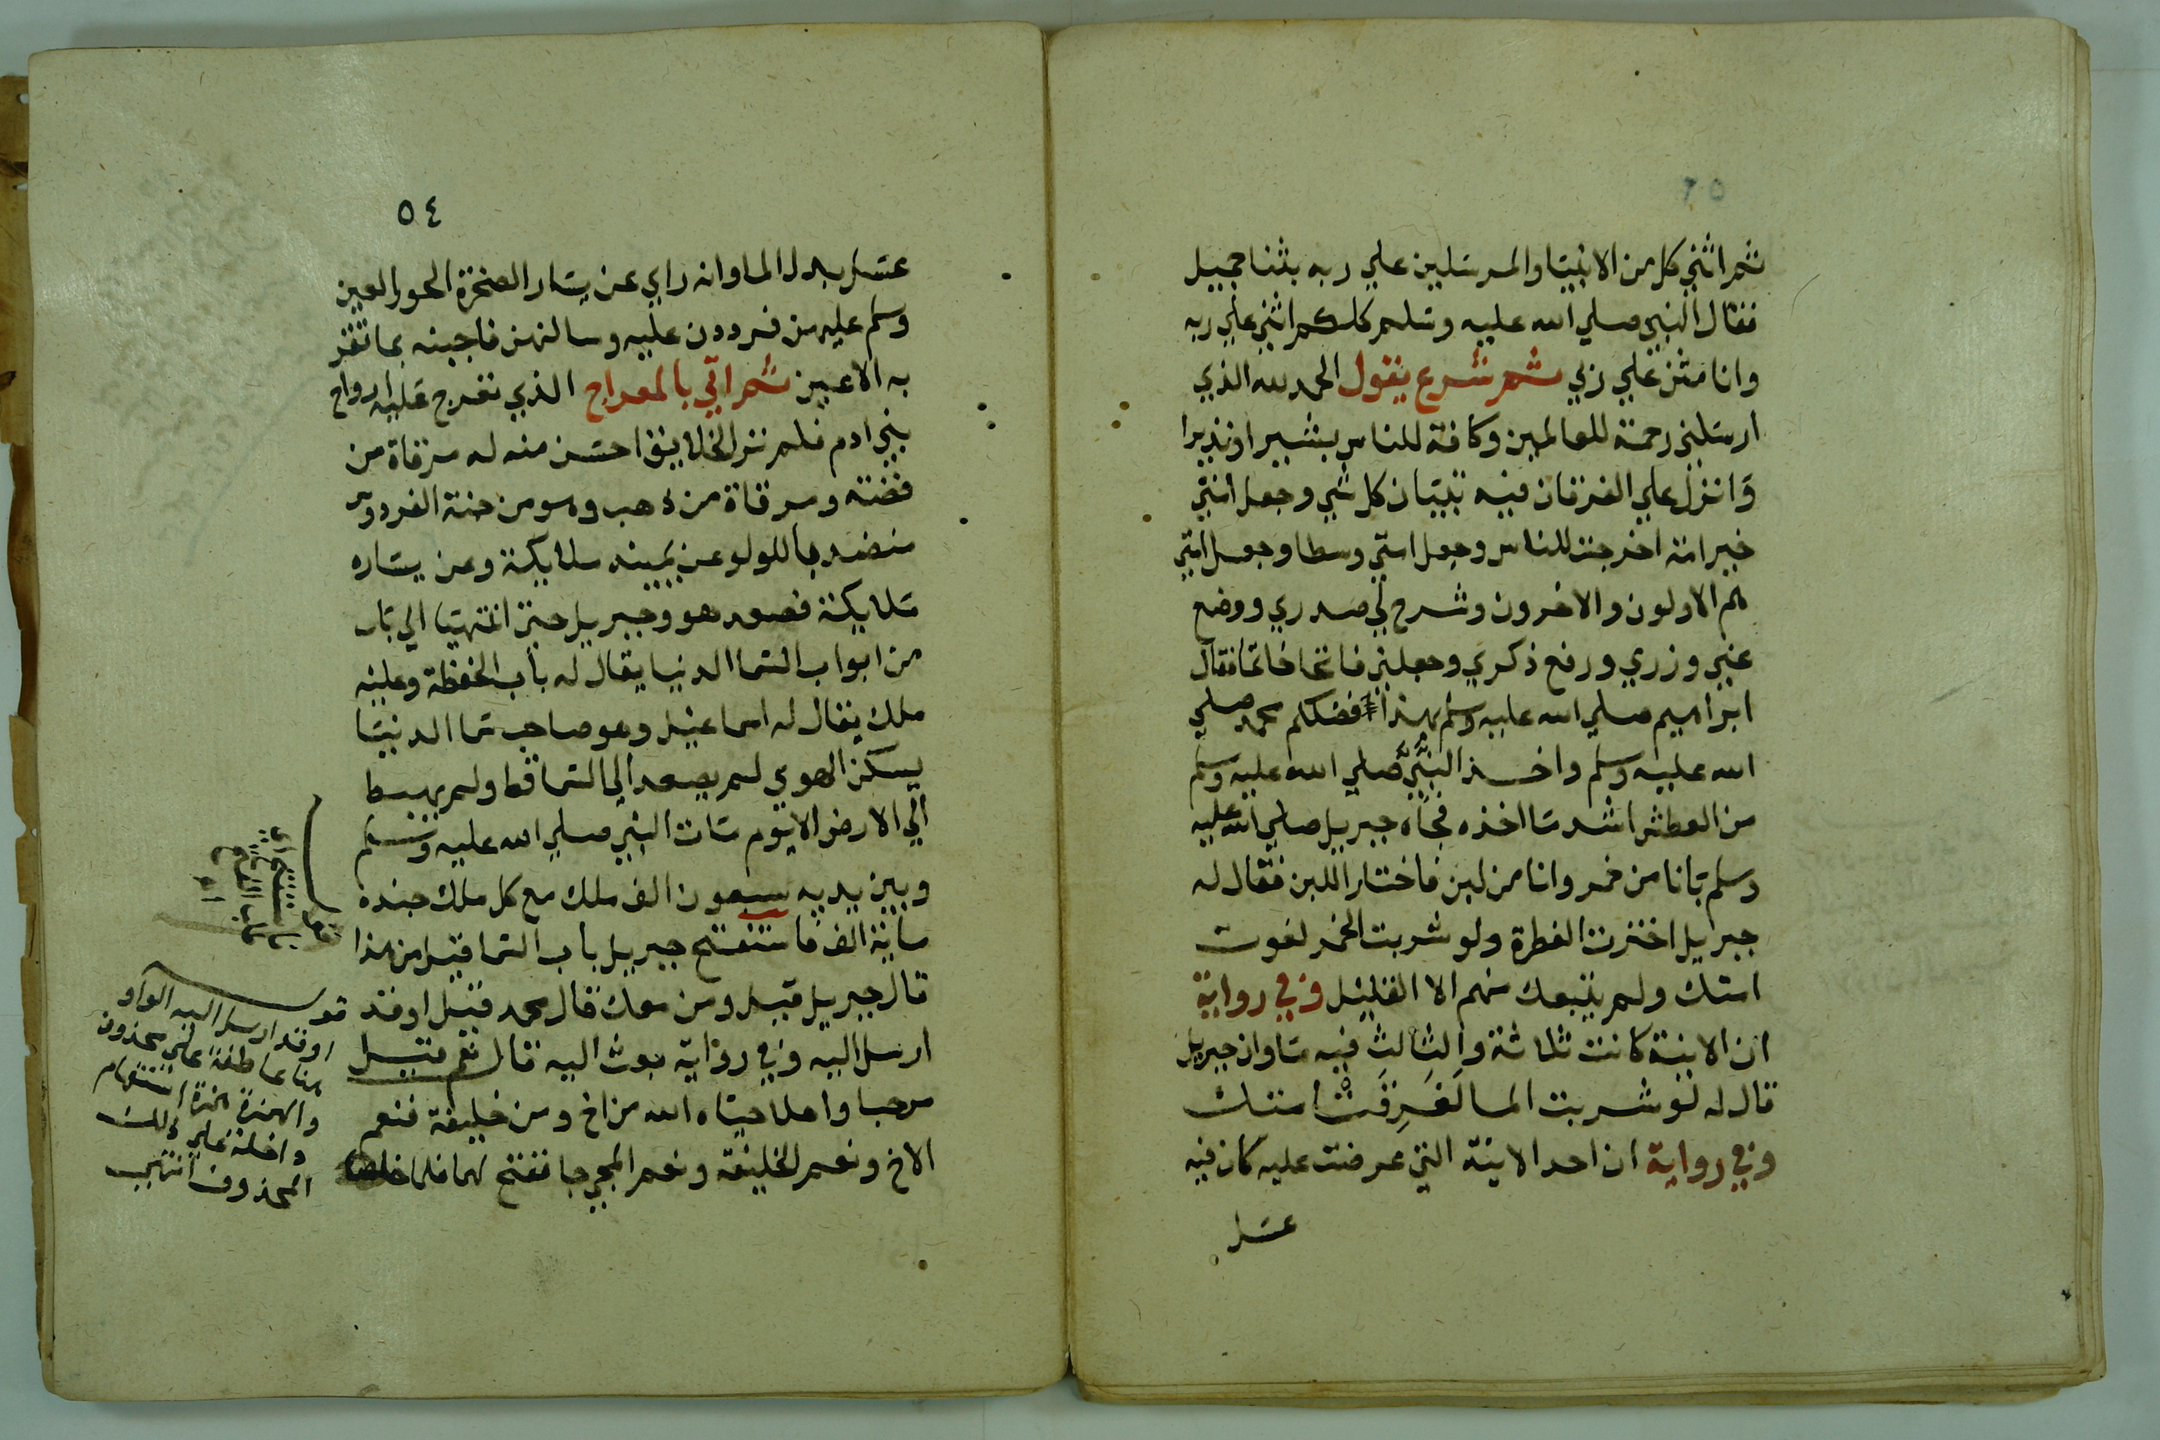 ثم اثني كل من الانبيا والمرسلين علي ربه بثنا جميل
فقال النبي صلي الله عليه وسلم كلكم اثني علي ربه
وانا مثن علي ربي ثم شرع يقول الحمد لله الذي
ارسلني رحمة للعالمين وكافة للناس بشيرا ونذيرا
وانزل علي الفرقان فيه تبيان كل شي وجعل امتي
خير امة اخرجت للناس وجعل امتي وسطا وجعل امتي
هم الاولون والاخرون وشرح لي صدري ووضع
عني وزري ورفع ذكري وجعلني فاتحا خاتما فقال
ابراهيم صلي الله عليه وسلم بهذا فضلكم محمد صلي
الله عليه وسلم واخذ النبي صلي الله عليه وسلم
من العطش اشد ما اخذه فجاه جبريل صلي الله عليه
وسلم بانا من خمر وانا من لبن فاختار اللبن فقال له
جبرايل اخترت الفطرة ولو شربت الخمر لغوت
امتك ولم يتبعك منهم الا القليل وفي رواية
ان الانية كانت ثلاثة والثالث فيه ما وان جبريل
قال له لو شربت الما لغرقت امتك
وفي رواية ان احد الانية التي عرضت عليه كان فيه
عسل
٥٤
عسل بدل الما وانه راي عن يسار الصخرة الحور العين
وسلم عليهن فرددن عليه وسالهن فاجبنه بما تقر
به الاعين ثم اتي بالمعراج الذي تعرج عليه ارواح
بني ادم فلم تر الخلايق احسن منه له مرقاة من
فضة ومرقاة من ذهب وهو من جنة الفردوس
منضد باللولو عن يمينه ملايكة وعن يساره
ملايكة فصعد هو وجبريل حتي انتهيا الي باب
من ابواب السما الدنيا يقال له باب الحفظة وعليه
ملك يقال له اسماعيل وهو صاحب سما الدنيا
يسكن الهوي لم يصعد الي السما قط ولم يهبط
الي الارض الا يوم مات النبي صلي الله عليه وسلم
وبين يديه سبعون الف ملك مع كل ملك جنده
ماية الف فاستفتح جبريل باب السما قيل من هذا
قال جبريل قيل ومن معك قال محمد قيل اوقد
ارسل اليه وفي رواية بعث اليه قال نعم قيل
مرحبا واهلا حياه الله من اخ ومن خليفة فنعم
الاخ ونعم الخليفة ونعم المجي جا ففتح لهما فلما خلصا
قوله
اوقد ارسل اليه الواو
هنا عاطفة علي محذوف
والهمزة همزة استفهام
داخلة علي ذلك
المحذوف انتهي